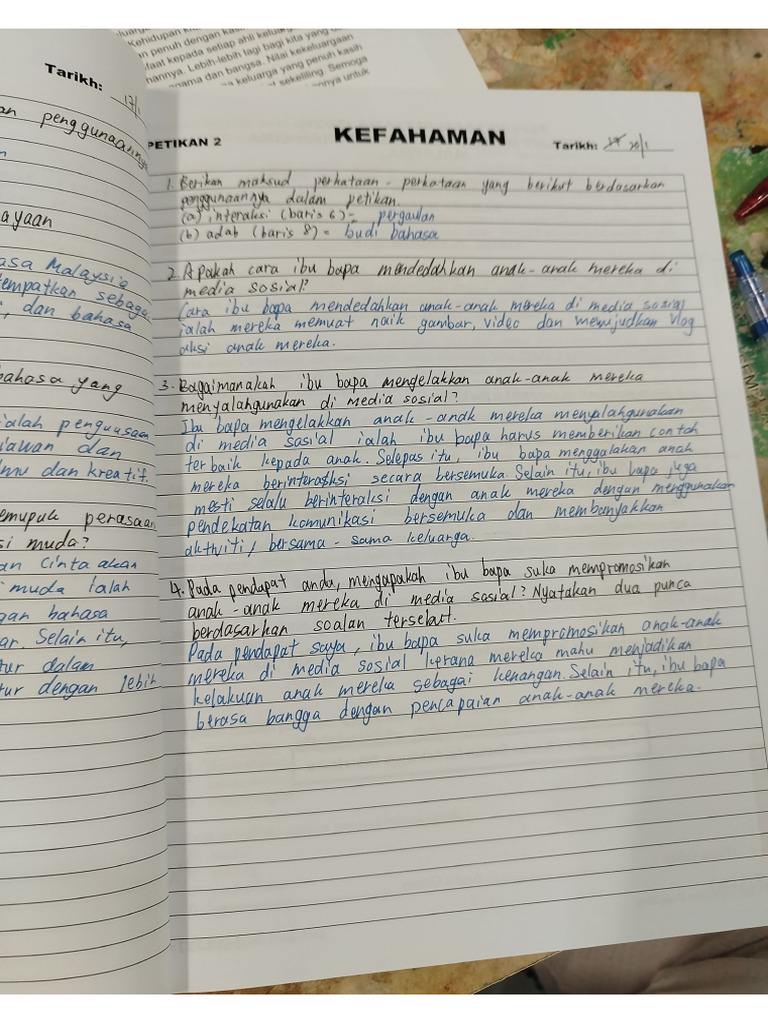 Kehidupan
penuh dengan kasi
faat kepada setiap ahli keluar
hannya. Lebih-lebih lagi bagi kita yang
agama dan bangsa. Nilai kekeluargaan
keluarga yang penuh kasih
sekeliling. Semoga
nnya untuk
Tarikh: 17/1
an penggunaannya
ayaan
asa Malaysia
tempatkan sebagai
, dan bahasa
bahasa yang
ialah penguasaan
iawan dan
lmu dan kreatif.
emupuk perasaan
si muda?
an cinta akan
i muda ialah
gan bahasa
ar. Selain itu,
tur dalam
tur dengan lebih
PETIKAN 2
KEFAHAMAN
Tarikh: 20/1
1. Berikan maksud perkataan-perkataan yang berikut berdasarkan
penggunaannya dalam petikan.
(a) interaksi (baris 6) = pergaulan
(b) adab (baris 8) = budi bahasa
2. Apakah cara ibu bapa mendedahkan anak-anak mereka di
media sosial?
Cara ibu bapa mendedahkan anak-anak mereka di media sosial
ialah mereka memuat naik gambar, video dan mewujudkan vlog
aksi anak mereka.
3. Bagaimanakah ibu bapa mengelakkan anak-anak mereka
menyalahgunakan di media sosial?
Ibu bapa mengelakkan anak-anak mereka menyalahgunakan
di media sosial ialah ibu bapa harus memberikan contoh
terbaik kepada anak. Selepas itu, ibu bapa menggalakan anak
mereka berinteraksi secara bersemuka. Selain itu, ibu bapa juga
mesti selalu berinteraksi dengan anak mereka dengan menggunakan
pendekatan komunikasi bersemuka dan membanyakkan
aktiviti, bersama-sama keluarga.
4. Pada pendapat anda, mengapakah ibu bapa suka mempromosikan
anak-anak mereka di media sosial? Nyatakan dua punca
berdasarkan soalan tersebut.
Pada pendapat saya, ibu bapa suka mempromosikan anak-anak
mereka di media sosial kerana mereka mahu menjadikan
kelakuan anak mereka sebagai kenangan. Selain itu, ibu bapa
berasa bangga dengan pencapaian anak-anak mereka.